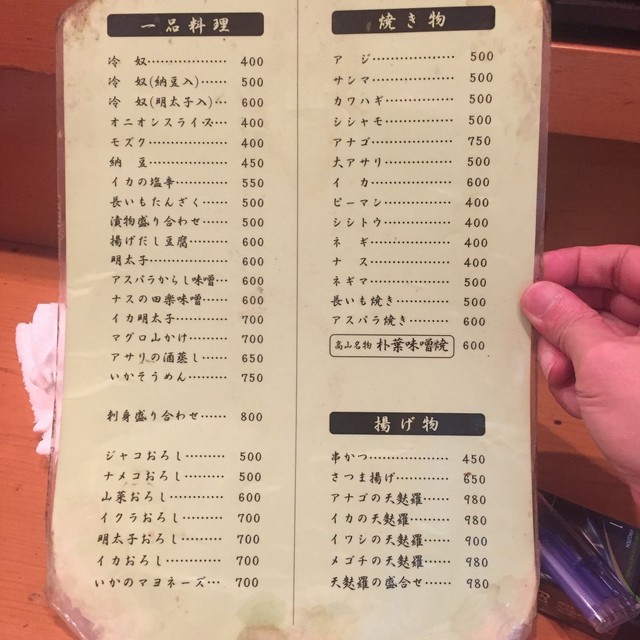 一品料理
冷 奴……………… 400
冷 奴(納豆入)…… 500
冷 奴(明太子入)… 600
オニオンスライス… 400
モズク…………… 400
納 豆…………… 450
イカの塩辛……… 550
長いもたんざく…… 500
漬物盛り合わせ…… 500
揚げだし豆腐……… 600
明太子…………… 600
アスパラからし味噌… 600
ナスの田楽味噌…… 600
イカ明太子……… 700
マグロ山かけ…… 700
アサリの酒蒸し…… 650
いかそうめん…… 750
刺身盛り合わせ…… 800
ジャコおろし……… 500
ナメコおろし……… 500
山菜おろし……… 600
イクラおろし……… 700
明太子おろし……… 700
イカおろし……… 700
いかのマヨネーズ… 700
焼き物
ア ジ……………… 500
サンマ…………… 500
カワハギ………… 500
シシャモ………… 500
アナゴ…………… 750
大アサリ………… 500
イ カ…………… 600
ピーマン………… 400
シシトウ………… 400
ネ ギ…………… 400
ナ ス…………… 400
ネギマ…………… 500
長いも焼き……… 500
アスパラ焼き…… 500
高山名物 朴葉味噌焼 600
揚げ物
串かつ…………… 450
さつま揚げ……… 650
アナゴの天麩羅…… 980
イカの天麩羅…… 980
イワシの天麩羅…… 900
メゴチの天麩羅…… 980
天麩羅の盛合せ…… 980